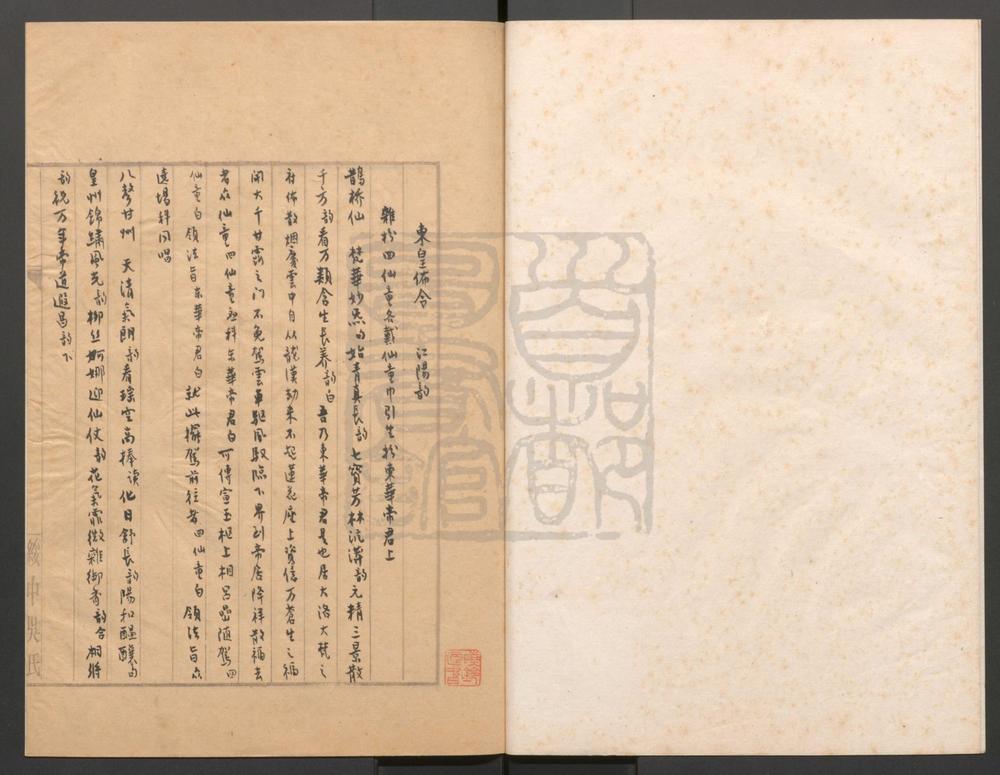 東皇佈令　江陽韵
雜扮四仙童各戴仙童巾引生扮東華帝君上
鵲橋仙　梵華妙炁句始青真長韵七寶芳林流溝韵元精三景散
千方韵看万類含生長养韵白吾乃東華帝君是也居大洛大梵之
府佈散烟慶雲中自从龍漢劫来不起蓮花座上資信万蒼生之福
開大千甘露之门不免駕雲車馳風馭臨下界到帝居降祥散福去
者众仙童四仙童应科东華帝君白可傳宣玉樞上相吕嵒随駕四
仙童白领法旨东華帝君白就此擺駕前往者四仙童白领法旨众
遶場科同唱
八聲甘州　天清氣朗韵看瑶空高捧读化日舒长韵陽和醖釀句
皇州錦繡風光韵柳丝婀娜迎仙仗韵花氣霏微雜御香韵合相将
韵祝万年帝道遐昌韵下
綏中吳氏